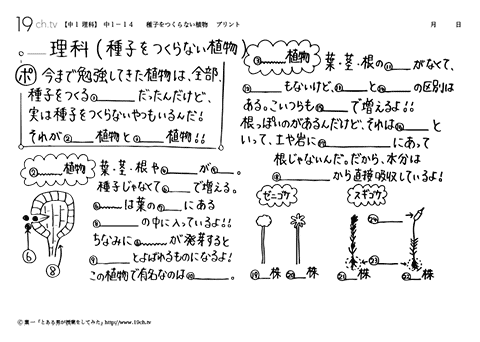 19ch.tv 【中1 理科】 中1－14 種子をつくらない植物 プリント 月 日
理科(種子をつくらない植物)
ポ 今まで勉強してきた植物は、全部、
種子をつくる①____だったんだけど、
実は種子をつくらないやつもいるんだ!
それが②____植物と③____植物!!
②____植物
葉・茎・根や④____が⑤____。
種子じゃなくて⑥____で増える。
⑥____は葉の⑦____にある
⑧____の中に入っているよ!!
ちなみに⑥____が発芽すると
⑨____とよばれるものになるよ!
この植物で有名なのは⑩____。
⑥ ⑧
③____植物
葉・茎・根の⑪____がなくて、
⑫____もないけど、⑬____と⑭____の区別は
ある。こいつらも⑮____で増えるよ!!
根っぽいのがあるんだけど、それは⑯____と
いって、土や岩に⑰____にあって
根じゃないんだ。だから、水分は
⑱____から直接吸収しているよ!
ゼニゴケ
スギゴケ
⑲__株 ⑳__株
㉑__株 ㉒__株
㉓
㉔
©葉一「とある男が授業をしてみた」http://www.19ch.tv